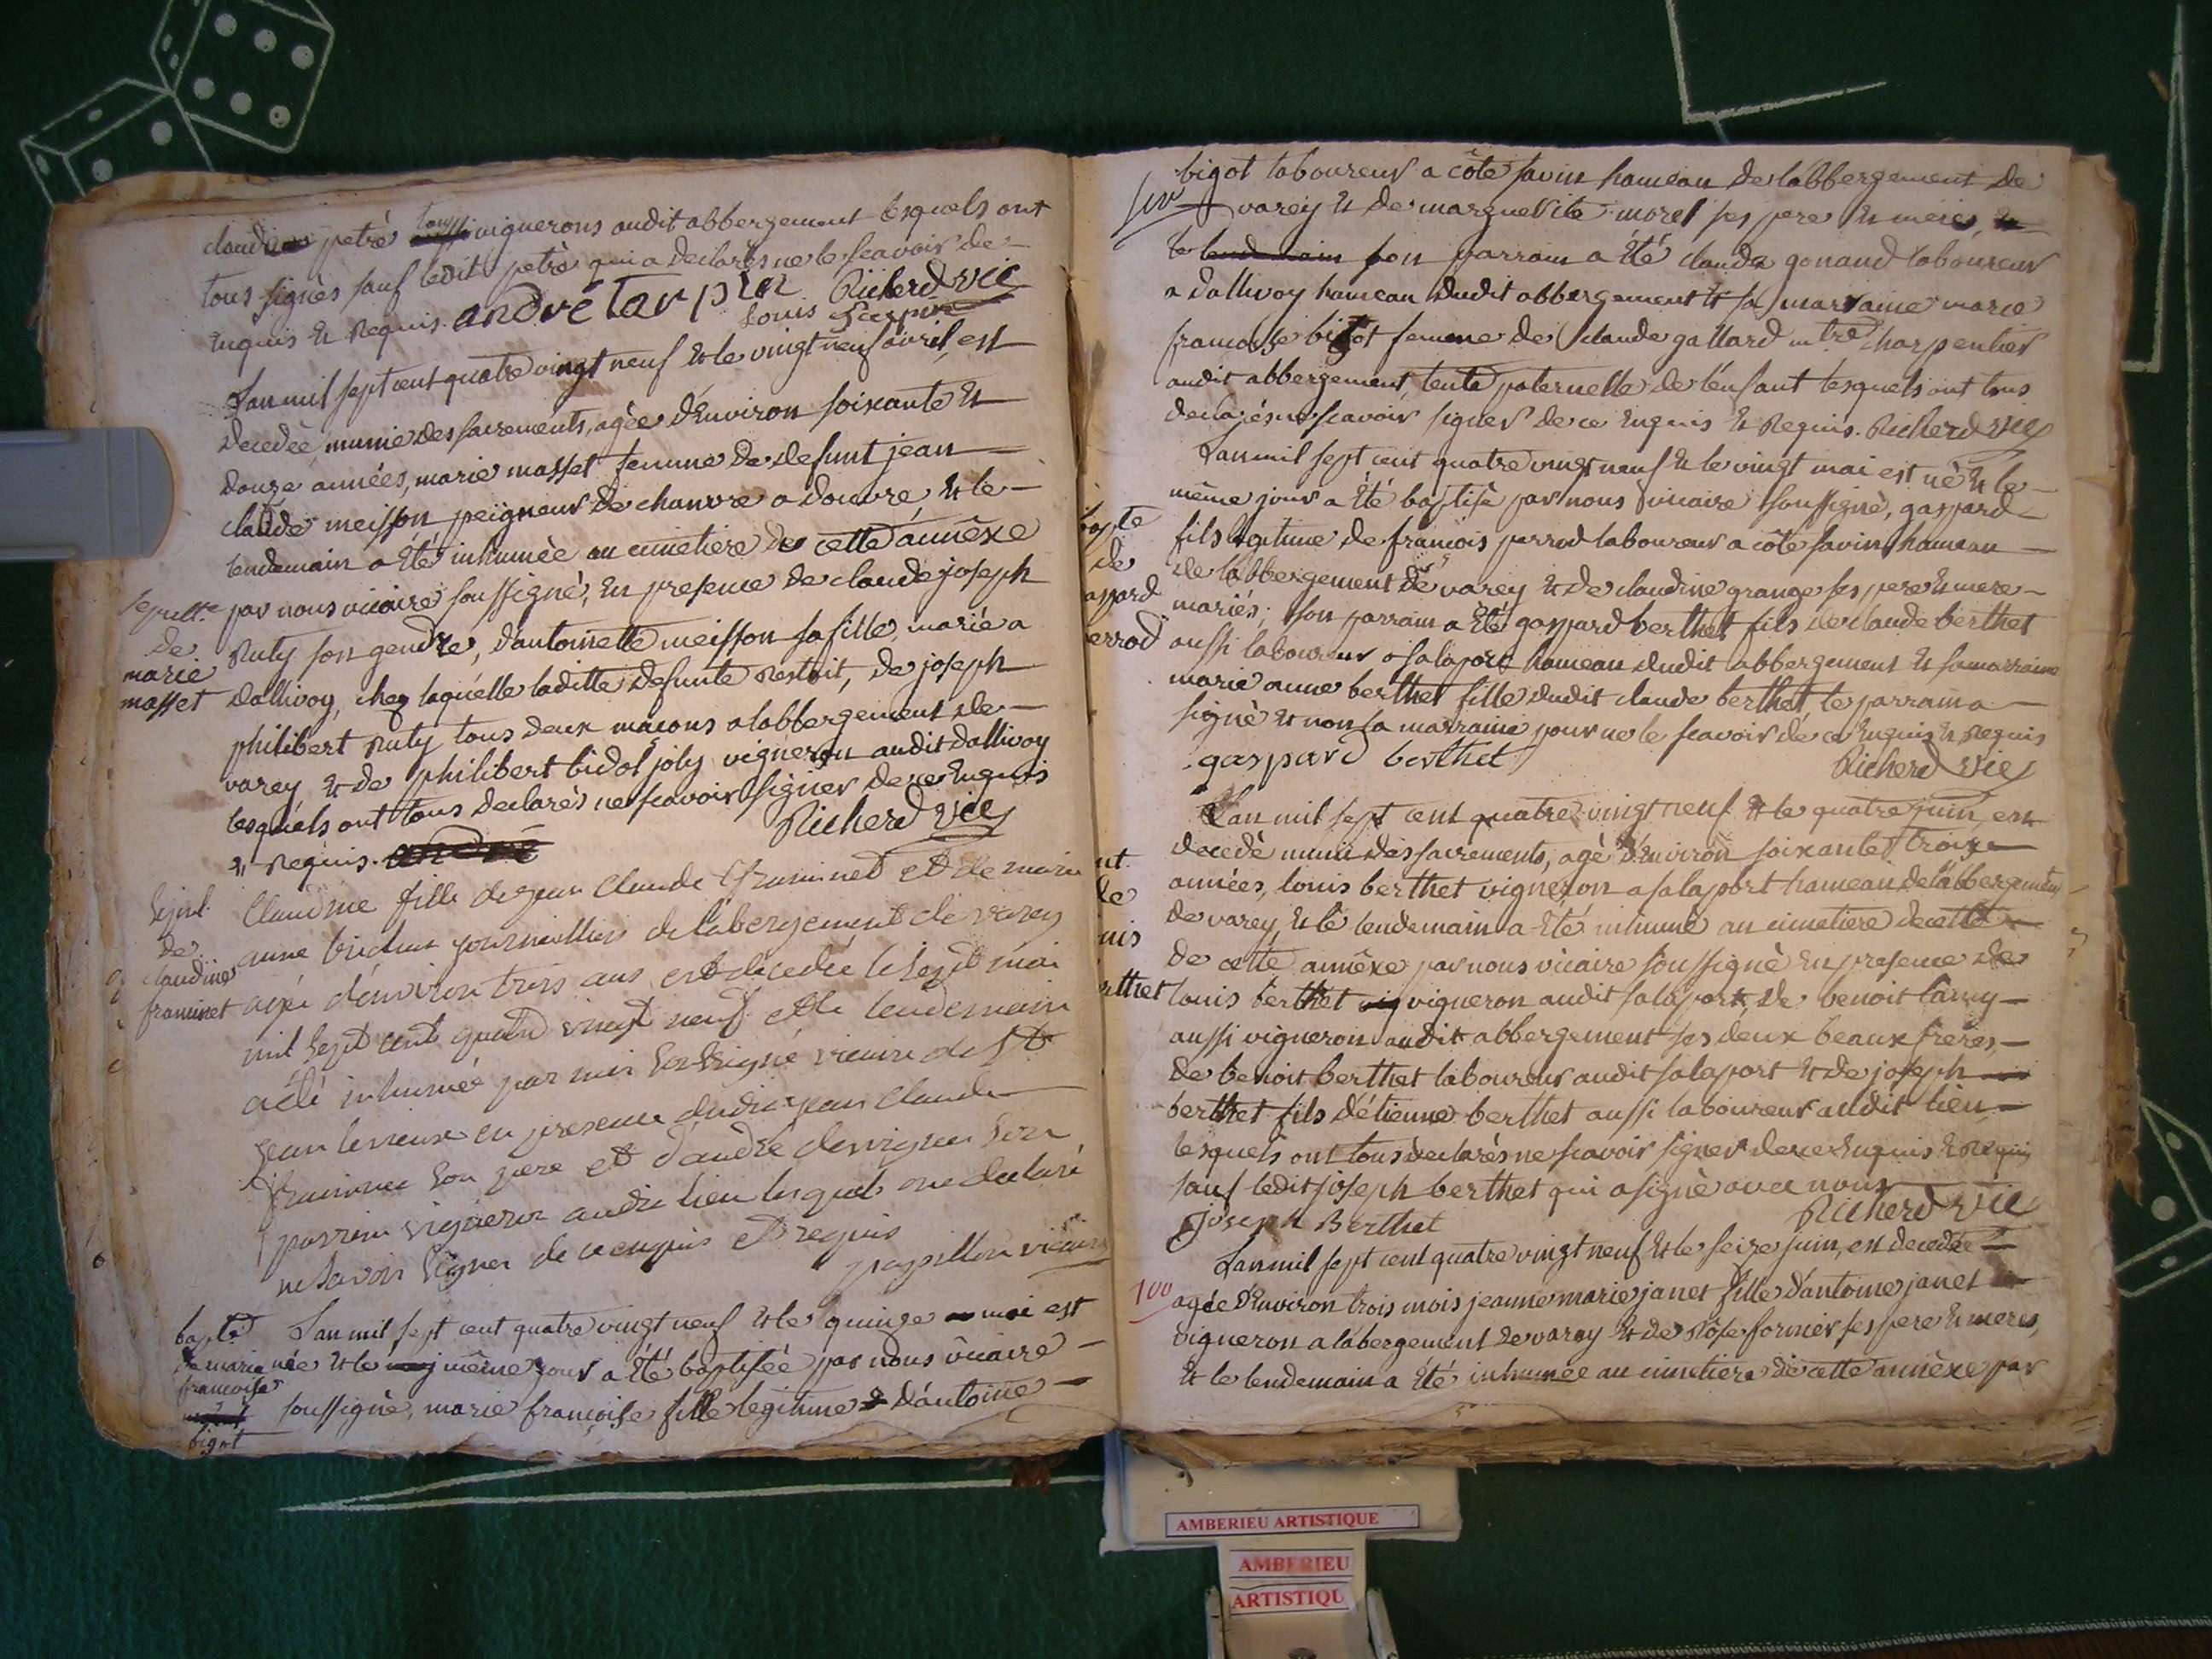 claude petrè tous vignerons audit abbergement lesquels ont
tous signès sauf ledit petrè qui a declarès ne le scavoir de
Enquis et Requis. andré tarpin Richerd vic
Louis
Lan mil sept cent quatre vingt neuf et le vingt neuf avril, est
decedèe, munie des sacrements, agèe d'Environ soixante et
douze années, marie masset femme de defunt jean
claude meisson peigneur de chanvre a douvre, et le
lendemain a Eté inhumèe au cimetiere de cette annèxe
par nous vicaire soussigné, En presence de claude joseph
Ruty son gendre, d'antoinette meisson sa fille, marié a
dallivoy, chez laquelle laditte defunte Restoit, de joseph
philibert Ruty tous deux maçons a labbergement de
varey et de philibert bidot joly vigneron audit dallivoy
lesquels ont tous declarès ne scavoir signer de ce Enquis
et Requis. andré Richerd vic
sepult.re
de
marie
masset
Claudine fille de jean Claude framinet et de marie
anne journallier de labergement de varey
agée d'environ trois ans, est décedée le sept mai
mil sept cent quatre vingt neuf et le lendemain
a été inhumée par moi soussigné vicaire de St
jean levieux en presence dudit jean Claude
framinet son pere et d'andré desvignes son
parrin vigneron audit lieu lesquels ont declaré
ne savoir signer de ce enquis et requis
papillon vicaire
Sepul.
de
claudine
framinet
Lan mil sept cent quatre vingt neuf et le quinze mai est
née et le même jour a Eté baptisèe par nous vicaire
soussignè, marie françoise fille legitime d'antoine
bapte
de marie
francoise
bigot
bigot laboureur a côte savin hameau de labbergement de
varey et de marguerite morel ses pere et mere, et
le lendemain son parrain a Eté claude gonand laboureur
a dallivoy hameau dudit abbergement et sa marraine marie
francoise bigot femme de claude gallard mtre charpentier
audit abbergement, tente paternelle de l'enfant lesquels ont tous
declarés ne scavoir signer de ce Enquis et Requis. Richerd vic
Lan mil sept cent quatre vingt neuf et le vingt mai est nè et le
même jour a Eté baptisé par nous vicaire soussignè, gaspard
fils legitime de francois perrod laboureur a côte savin hameau
de labbergement de varey et de claudine grange ses pere et mere
mariés; son parrain a Eté gaspard berthet fils de claude berthet
aussi laboureur a salaport hameau dudit abbergement et sa marraine
marie anne berthet fille dudit claude berthet le parrain a
signè et non sa marraine pour ne le scavoir de ce Enquis et Requis
gaspard berthet Richerd vic
bapte
de
gaspard
errod
Lan mil sept cent quatre vingt neuf et le quatre juin, est
decedè muni des sacrements, agè d'Environ soixante trois
années, louis berthet vigneron a salaport hameau de l'abbergement
de varey, et le lendemain a Eté inhumé au cimetiere de cette
de cette annèxe par nous vicaire soussignè En presence de
louis berthet vig vigneron audit salaport, de benoit larrey
aussi vigneron audit abbergement ses deux beaux freres,
de benoit berthet laboureur audit salaport et de joseph
berthet fils d'étienne berthet aussi laboureur audit lieu
lesquels ont tous declarès ne scavoir signer de ce Enquis et Requis
sauf ledit joseph berthet qui a signè avec nous
joseph Berthet Richerd vic
rthet
Lan mil sept cent quatre vingt neuf et le seize juin, est decedèe
100
agée d'Environ trois mois jeanne marie janet fille d'antoine janet
vigneron a labergement de varey et de Rôse fornier ses pere et mere,
et le lendemain a Eté inhumée au cimetiere de cette annèxe par
AMBERIEU ARTISTIQUE
AMBERIEU
ARTISTIQU